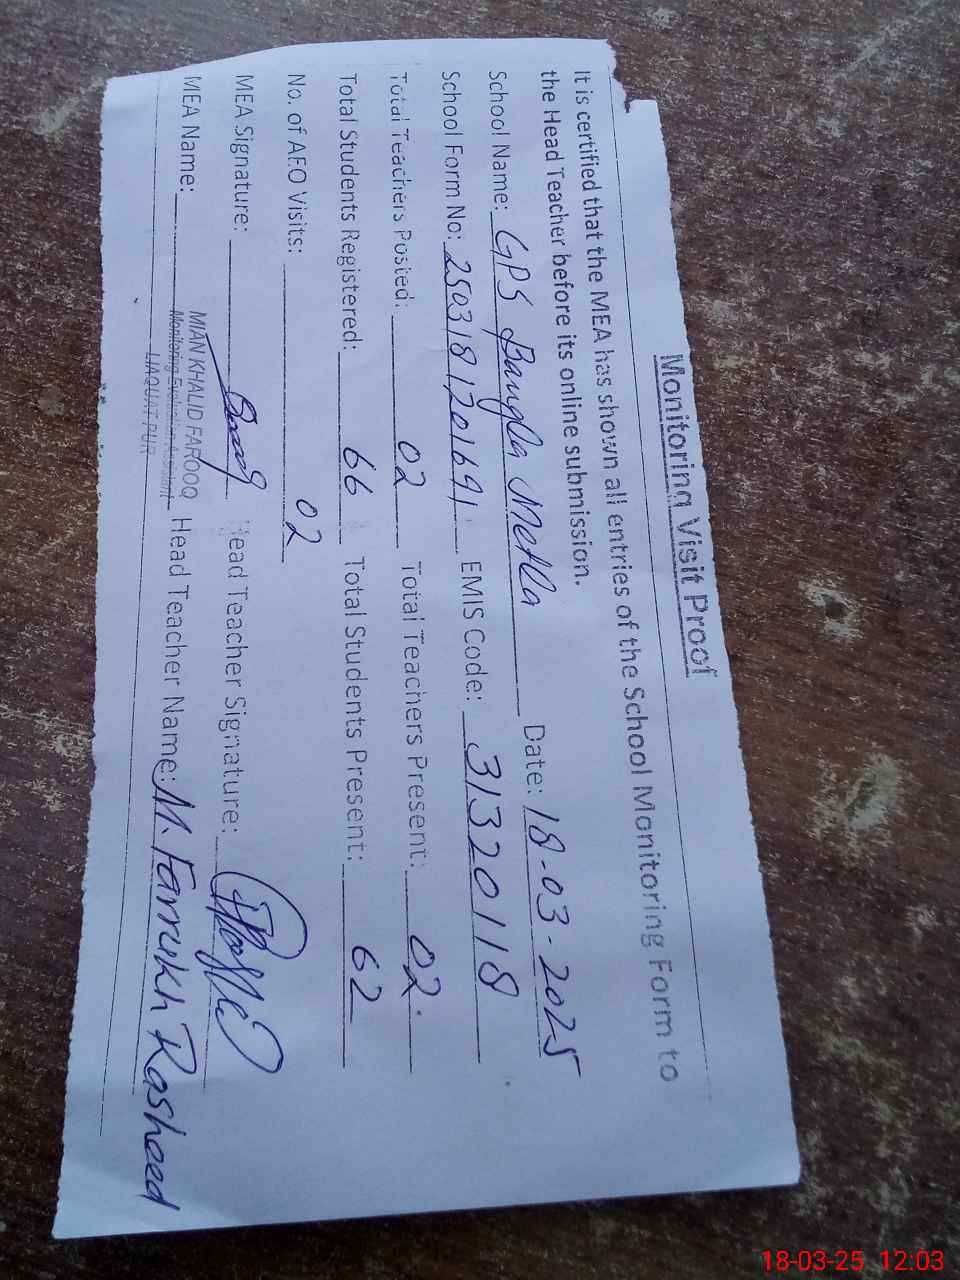 Monitoring Visit Proof
It is certified that the MEA has shown all entries of the School Monitoring Form to
the Head Teacher before its online submission.
School Name: GPS Bangla Metla Date: 18-03-2025
School Form No: 2503181201691 EMIS Code: 31320118
Total Teachers Posted: 02 Total Teachers Present: 02
Total Students Registered: 66 Total Students Present: 62
No. of AEO Visits: 02
MEA Signature: Head Teacher Signature:
MEA Name: MIAN KHALID FAROOQ Head Teacher Name: M. Farrukh Rasheed
Monitoring Evaluation Assistant
LIAQUAT PUR
18-03-25 12:03